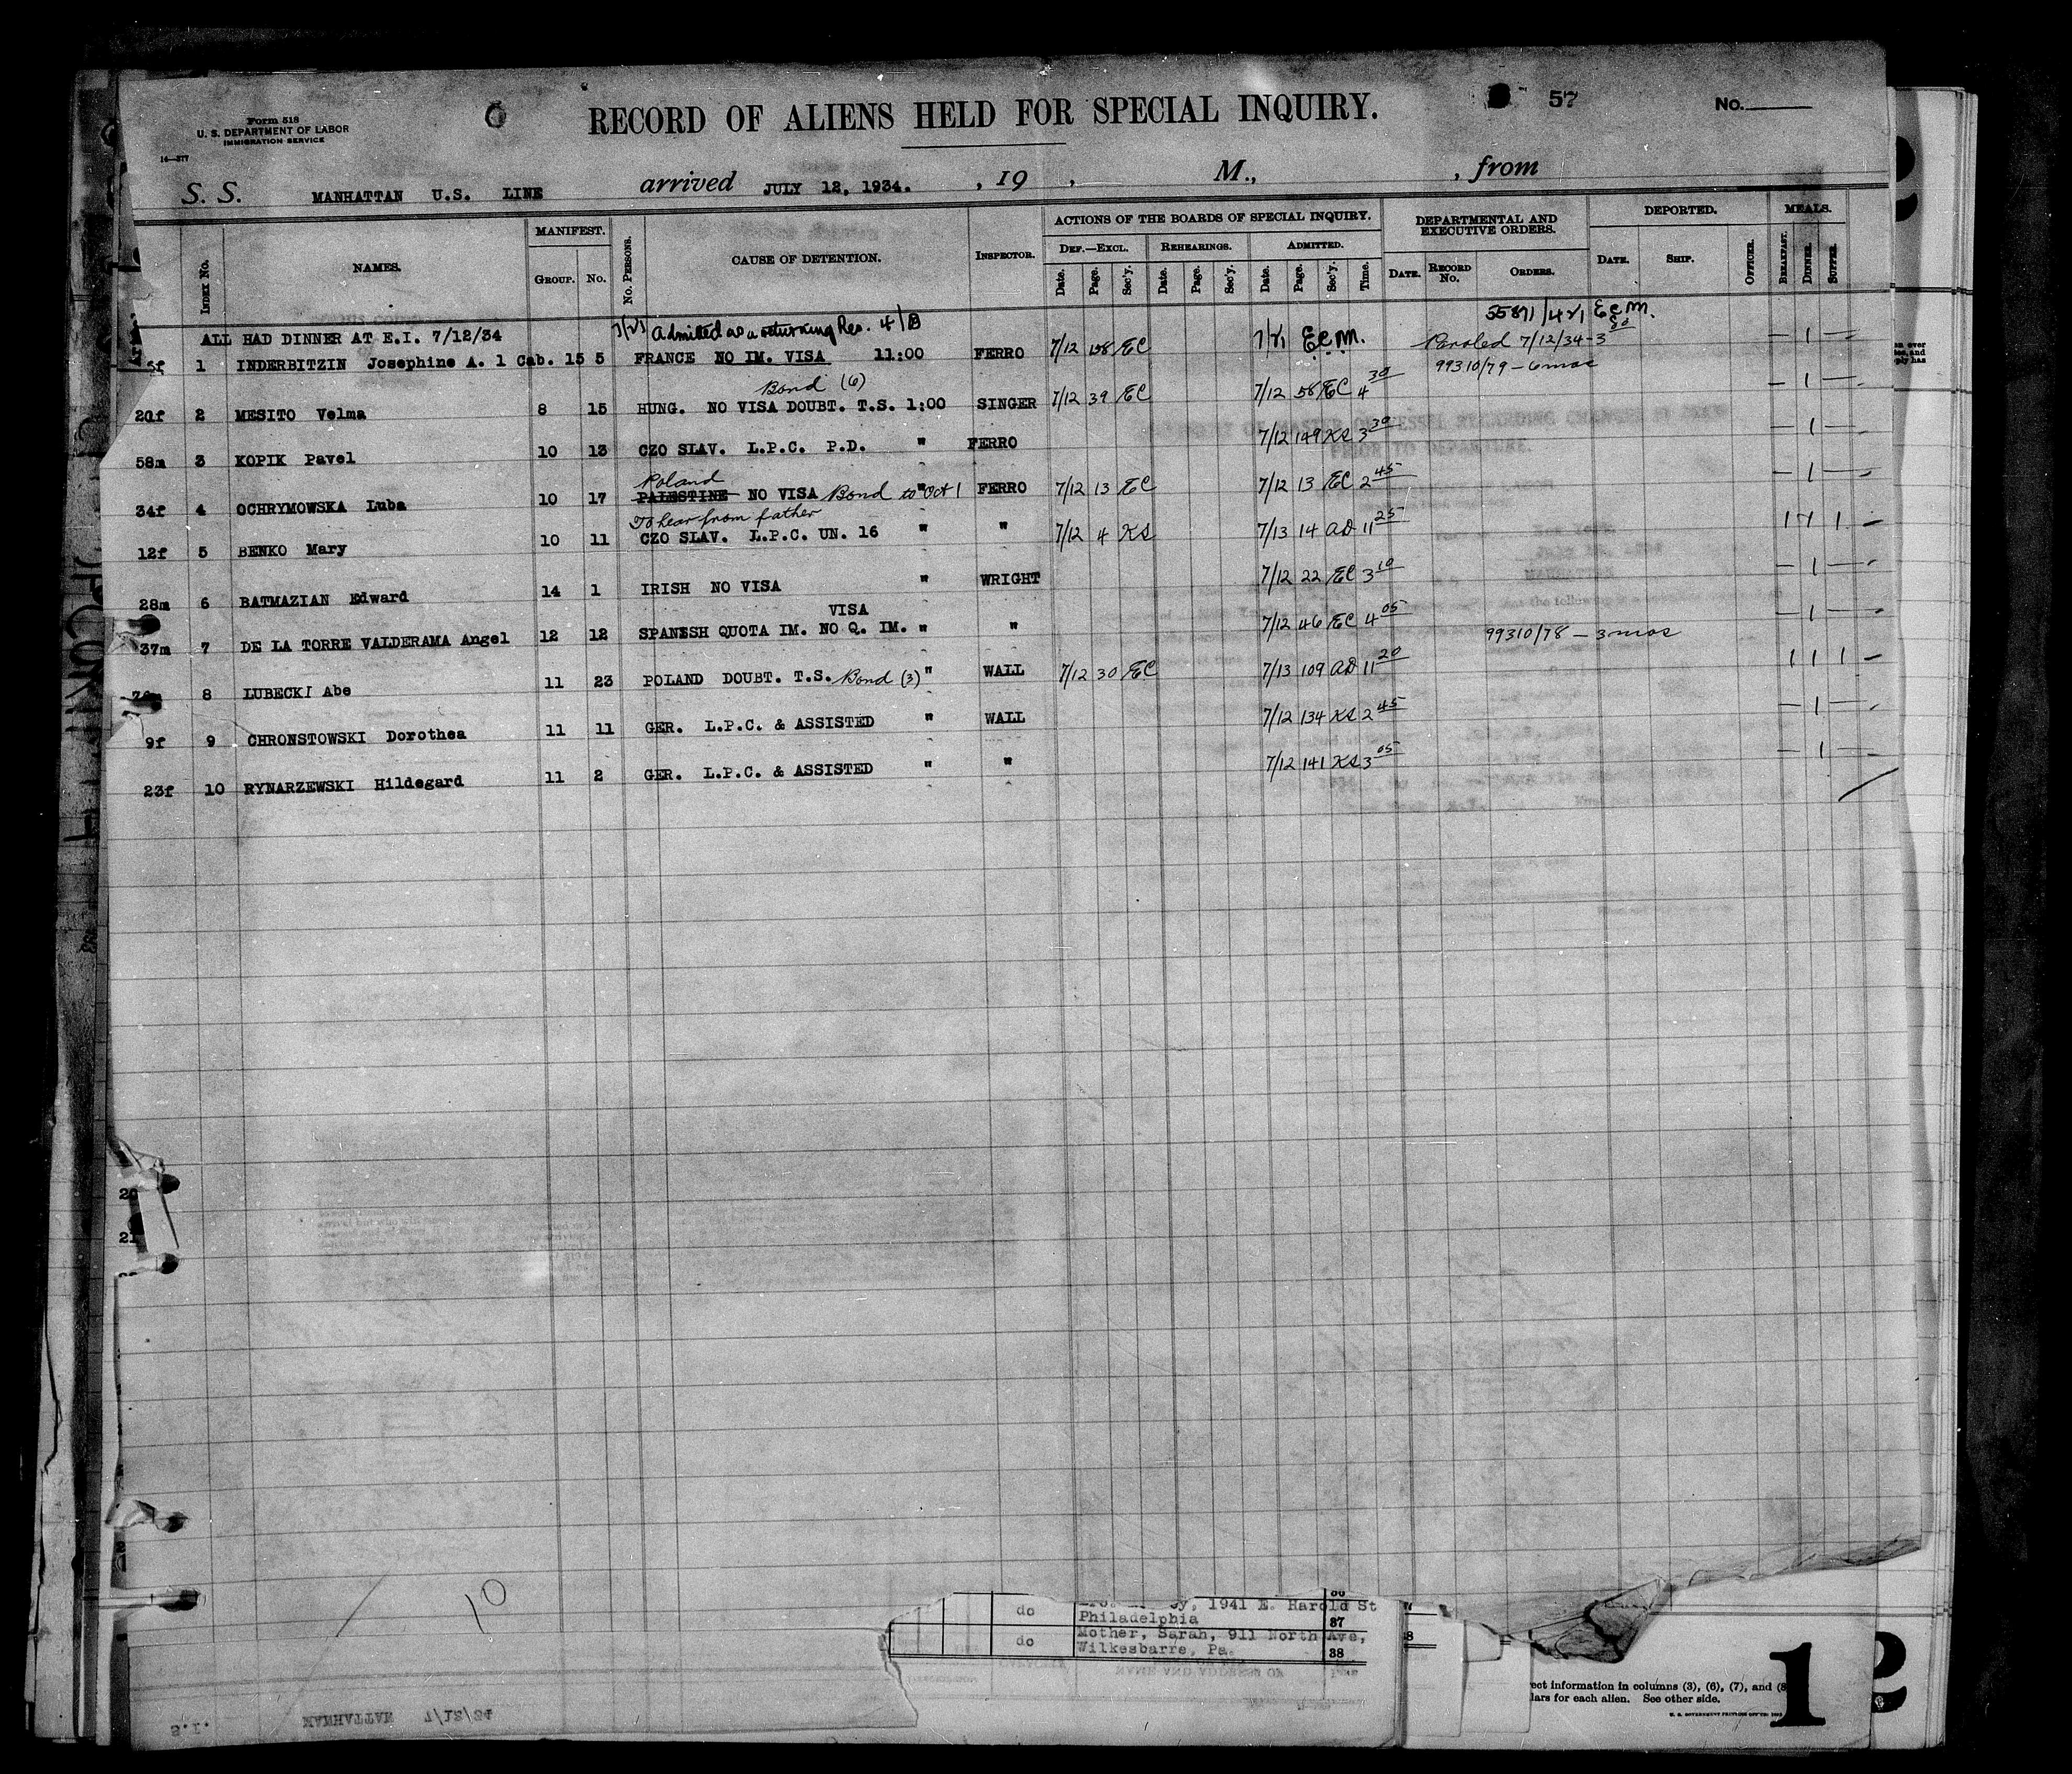 Form 518
U. S. DEPARTMENT OF LABOR
IMMIGRATION SERVICE
16—277
RECORD OF ALIENS HELD FOR SPECIAL INQUIRY.
57
No.
S. S. MANHATTAN U.S. LINE arrived JULY 12, 1934. , 19 , M., , from
INDEX No. NAMES. MANIFEST. GROUP. No. No. PERSONS. CAUSE OF DETENTION. INSPECTOR. ACTIONS OF THE BOARDS OF SPECIAL INQUIRY. DEF.—EXCL. Date. Page. Sec'y. REHEARINGS. Date. Page. Sec'y. ADMITTED. Date. Page. Sec'y. Time. DEPARTMENTAL AND EXECUTIVE ORDERS. DATE. RECORD No. ORDERS. DEPORTED. DATE. SHIP. OFFICER. MEALS. BREAKFAST. DINNER. SUPPER.
55891/421 E.C.M.
ALL HAD DINNER AT E.I. 7/12/34 Admitted as a returning Res. 4/B
5f 1 INDERBITZIN Josephine A. 1 Cab. 15 5 FRANCE NO IM. VISA 11:00 FERRO 7/12 158 EC E.C.M. Paroled 7/12/34-3 30
Bond (6) 99310/79 - 6 mos
20f 2 MESITO Velma 8 15 HUNG. NO VISA DOUBT. T.S. 1:00 SINGER 7/12 39 EC 7/12 58 EC 4 30
58m 3 KOPIK Pavel 10 13 CZO SLAV. L.P.C. P.D. " FERRO 7/12 149 KS 3 30
Poland
34f 4 OCHRYMOWSKA Luba 10 17 PALESTINE NO VISA Bond to Oct 1 " FERRO 7/12 13 EC 7/12 13 EC 2 45
To hear from father
12f 5 BENKO Mary 10 11 CZO SLAV. L.P.C. UN. 16 " " 7/12 4 KS 7/13 14 AD 11 25
28m 6 BATMAZIAN Edward 14 1 IRISH NO VISA " WRIGHT 7/12 22 EC 3 10
VISA
37m 7 DE LA TORRE VALDERAMA Angel 12 12 SPANISH QUOTA IM. NO Q. IM. " " 7/12 46 EC 4 05
99310/78 - 3 mos
8 LUBECKI Abe 11 23 POLAND DOUBT. T.S. Bond (3) " WALL 7/12 30 EC 7/13 109 AD 11 20
9f 9 CHRONSTOWSKI Dorothea 11 11 GER. L.P.C. & ASSISTED " WALL 7/12 134 KS 2 45
23f 10 RYNARZEWSKI Hildegard 11 2 GER. L.P.C. & ASSISTED " " 7/12 141 KS 3 05
20
21
10
do 1941 E. Harold St
Philadelphia 37
do Mother, Sarah, 911 North Ave,
Wilkesbarre, Pa. 38
rect information in columns (3), (6), (7), and (8
lars for each alien. See other side.
U. S. GOVERNMENT PRINTING OFFICE
1
2
S.I. MANHATTAN 7/12/34